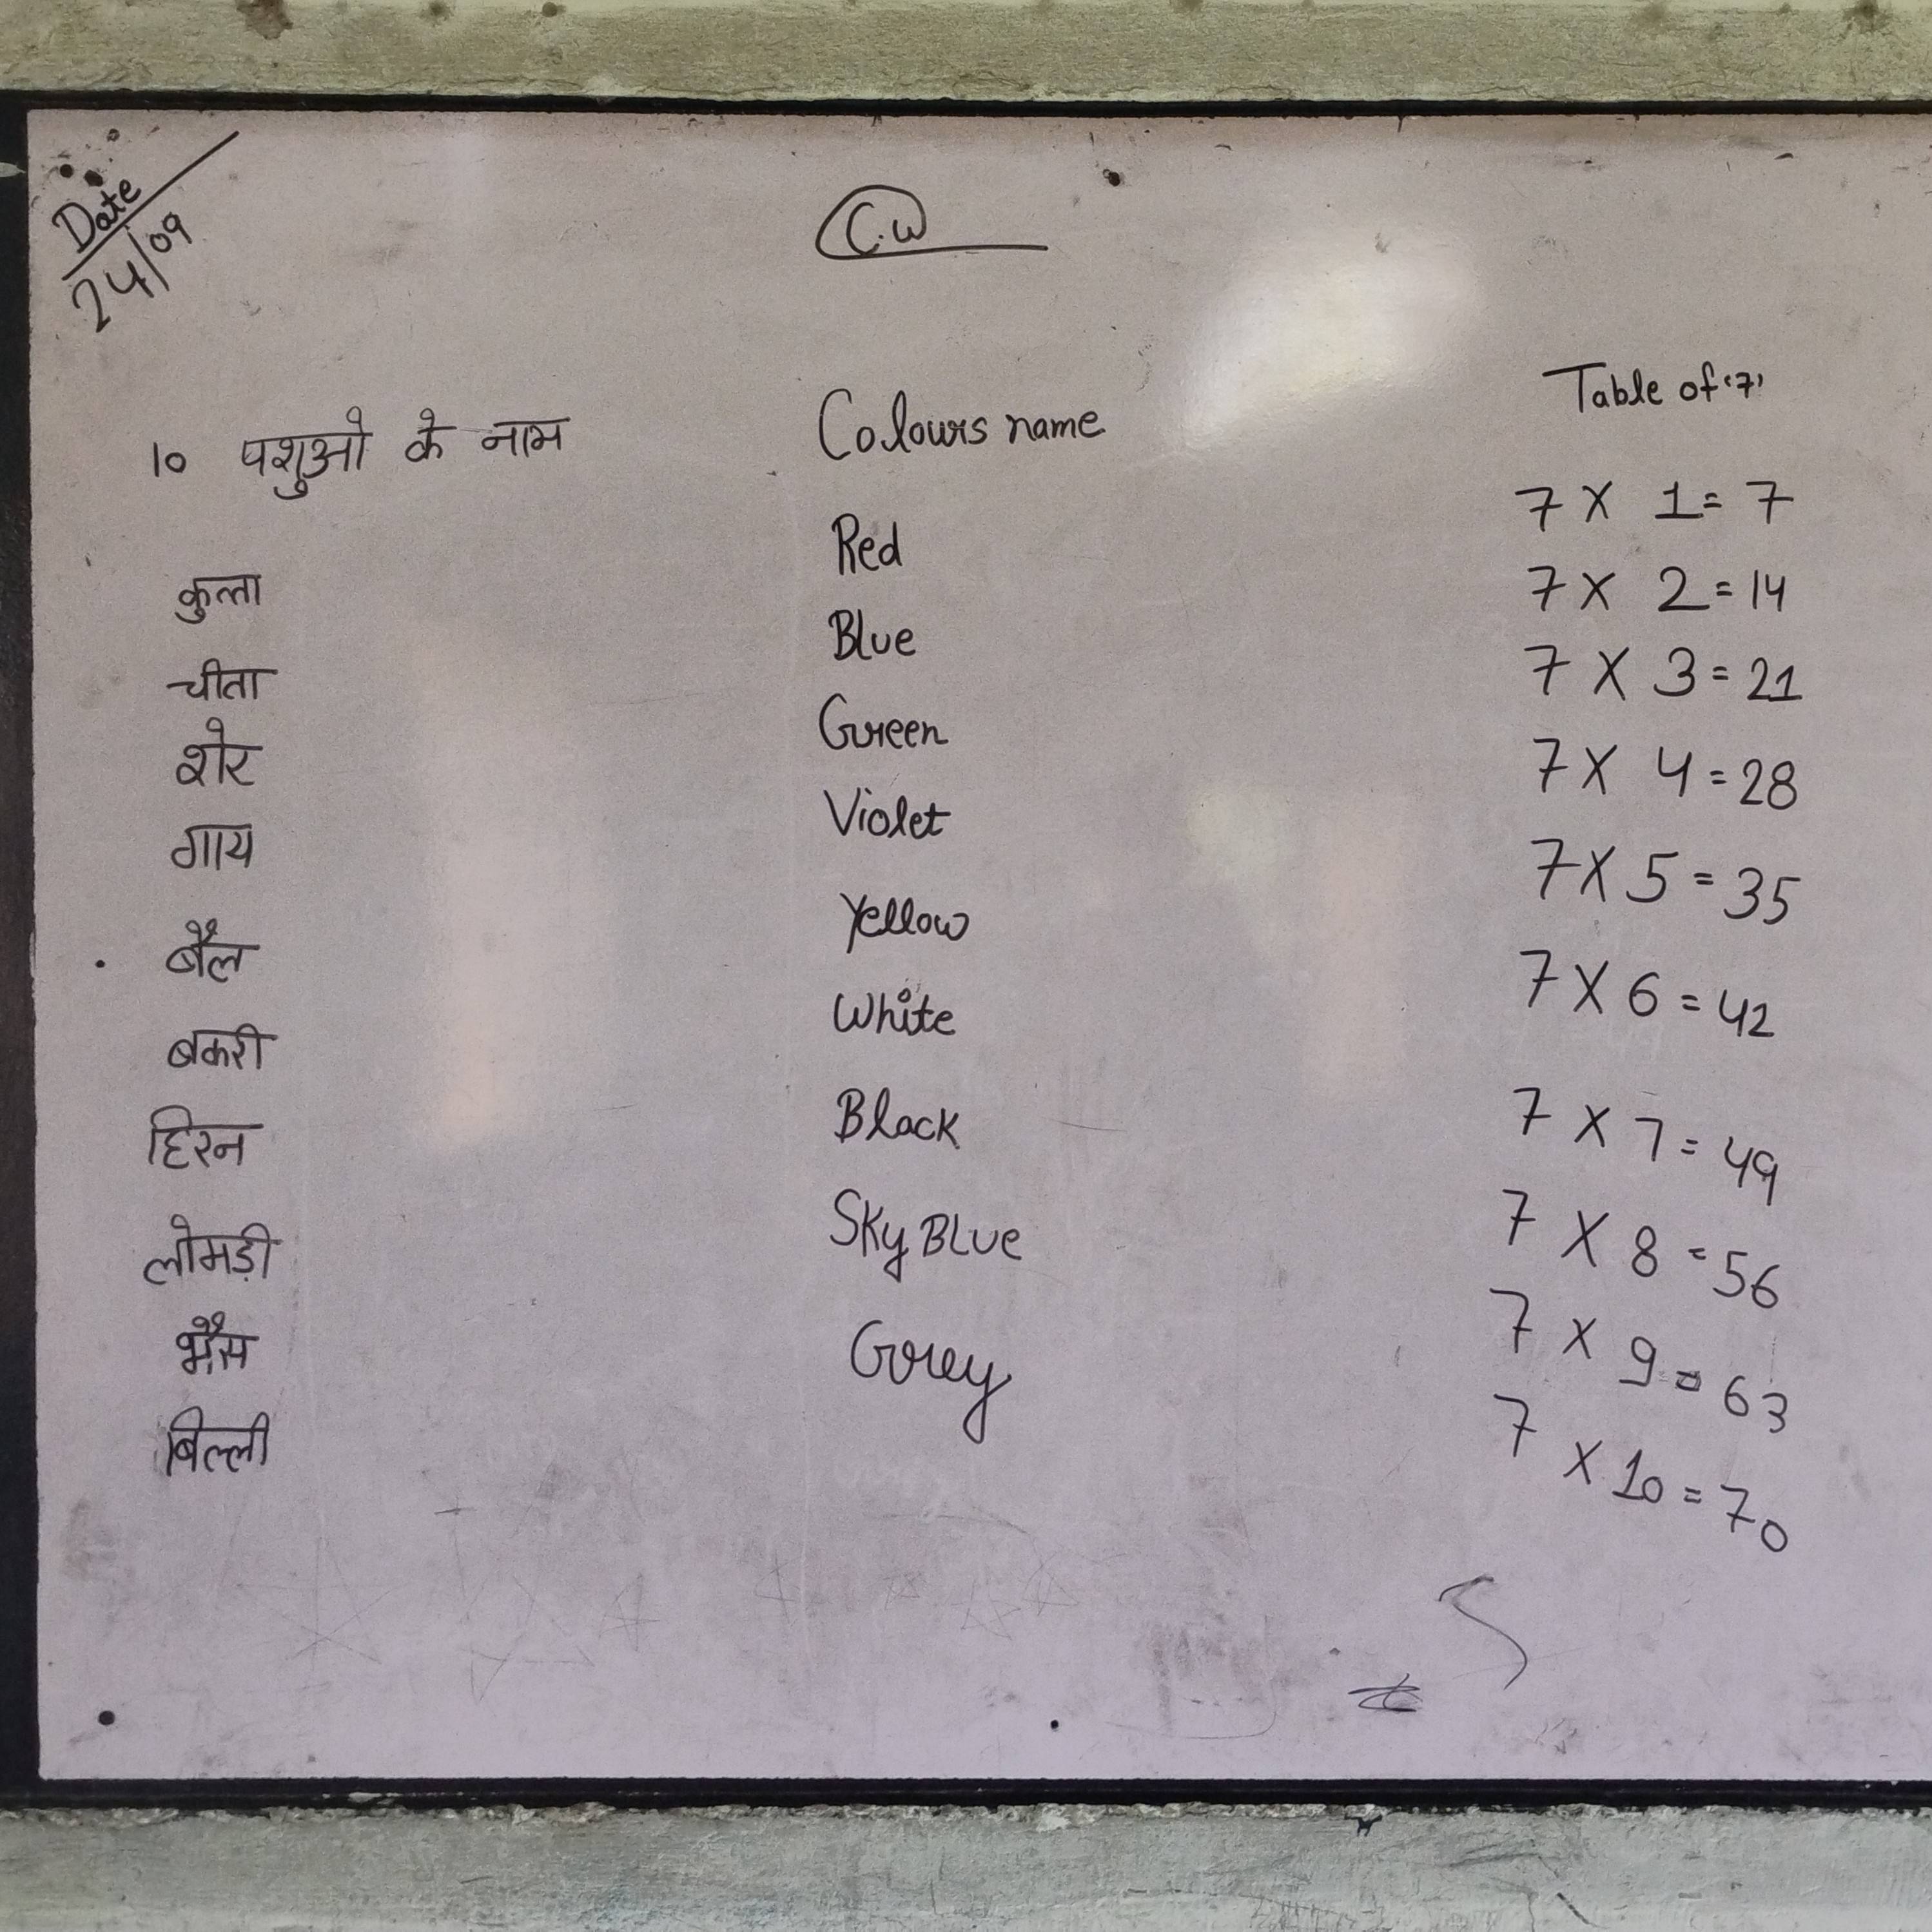 Date
24/09
C.W
10 पशुओ के नाम
कुत्ता
चीता
शेर
गाय
बैल
बकरी
हिरन
लोमड़ी
भैंस
बिल्ली
Colours name
Red
Blue
Green
Violet
Yellow
White
Black
Sky Blue
Grey
Table of '7'
7 X 1 = 7
7 X 2 = 14
7 X 3 = 21
7 X 4 = 28
7 X 5 = 35
7 X 6 = 42
7 X 7 = 49
7 X 8 = 56
7 X 9 = 63
7 X 10 = 70